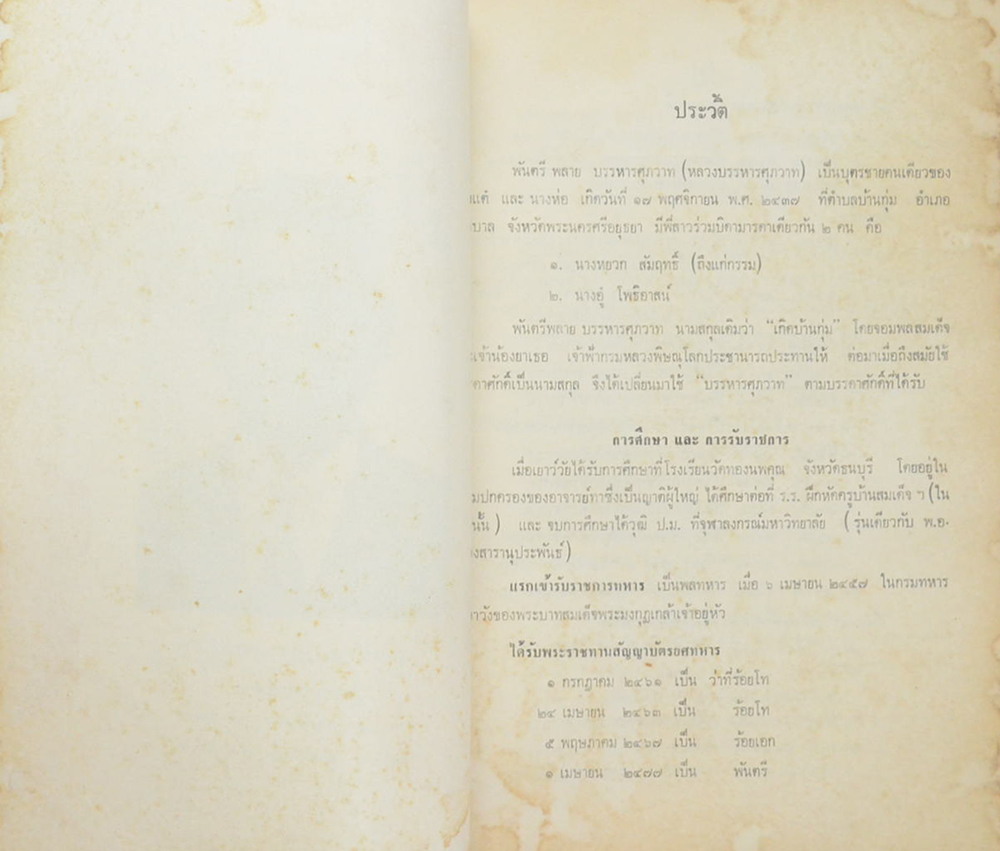 ประวัติ
พันตรี พลาย บรรหารศุภวาท (หลวงบรรหารศุภวาท) เป็นบุตรชายคนเดียวของ
และ นางห่อ เกิดวันที่ ๑๗ พฤศจิกายน พ.ศ. ๒๔๓๗ ที่ตำบลบ้านกุ่ม อำเภอ
บาล จังหวัดพระนครศรีอยุธยา มีพี่สาวร่วมบิดามารดาเดียวกัน ๒ คน คือ
๑. นางหยวก สัมฤทธิ์ (ถึงแก่กรรม)
๒. นางอู๋ โพธิอาสน์
พันตรีพลาย บรรหารศุภวาท นามสกุลเดิมว่า “เกิดบ้านกุ่ม” โดยจอมพลสมเด็จ
เจ้าน้องยาเธอ เจ้าฟ้ากรมหลวงพิษณุโลกประชานารถประทานให้ ต่อมาเมื่อถึงสมัยใช้
ดาศักดิ์เป็นนามสกุล จึงได้เปลี่ยนมาใช้ “บรรหารศุภวาท” ตามบรรดาศักดิ์ที่ได้รับ
การศึกษา และ การรับราชการ
เมื่อเยาว์วัยได้รับการศึกษาที่โรงเรียนวัดทองนพคุณ จังหวัดธนบุรี โดยอยู่ใน
มปกครองของอาจารย์ทาซึ่งเป็นญาติผู้ใหญ่ ได้ศึกษาต่อที่ ร.ร. ฝึกหัดครูบ้านสมเด็จ ฯ (ใน
นั้น) และ จบการศึกษาได้วุฒิ ป.ม. ที่จุฬาลงกรณ์มหาวิทยาลัย (รุ่นเดียวกับ พ.อ.
งสารานุประพันธ์)
แรกเข้ารับราชการทหาร เป็นพลทหาร เมื่อ ๖ เมษายน ๒๔๕๗ ในกรมทหาร
วังของพระบาทสมเด็จพระมงกุฎเกล้าเจ้าอยู่หัว
ได้รับพระราชทานสัญญาบัตรยศทหาร
๑ กรกฎาคม ๒๔๖๑ เป็น ว่าที่ร้อยโท
๒๔ เมษายน ๒๔๖๓ เป็น ร้อยโท
๕ พฤษภาคม ๒๔๖๗ เป็น ร้อยเอก
๑ เมษายน ๒๔๗๗ เป็น พันตรี